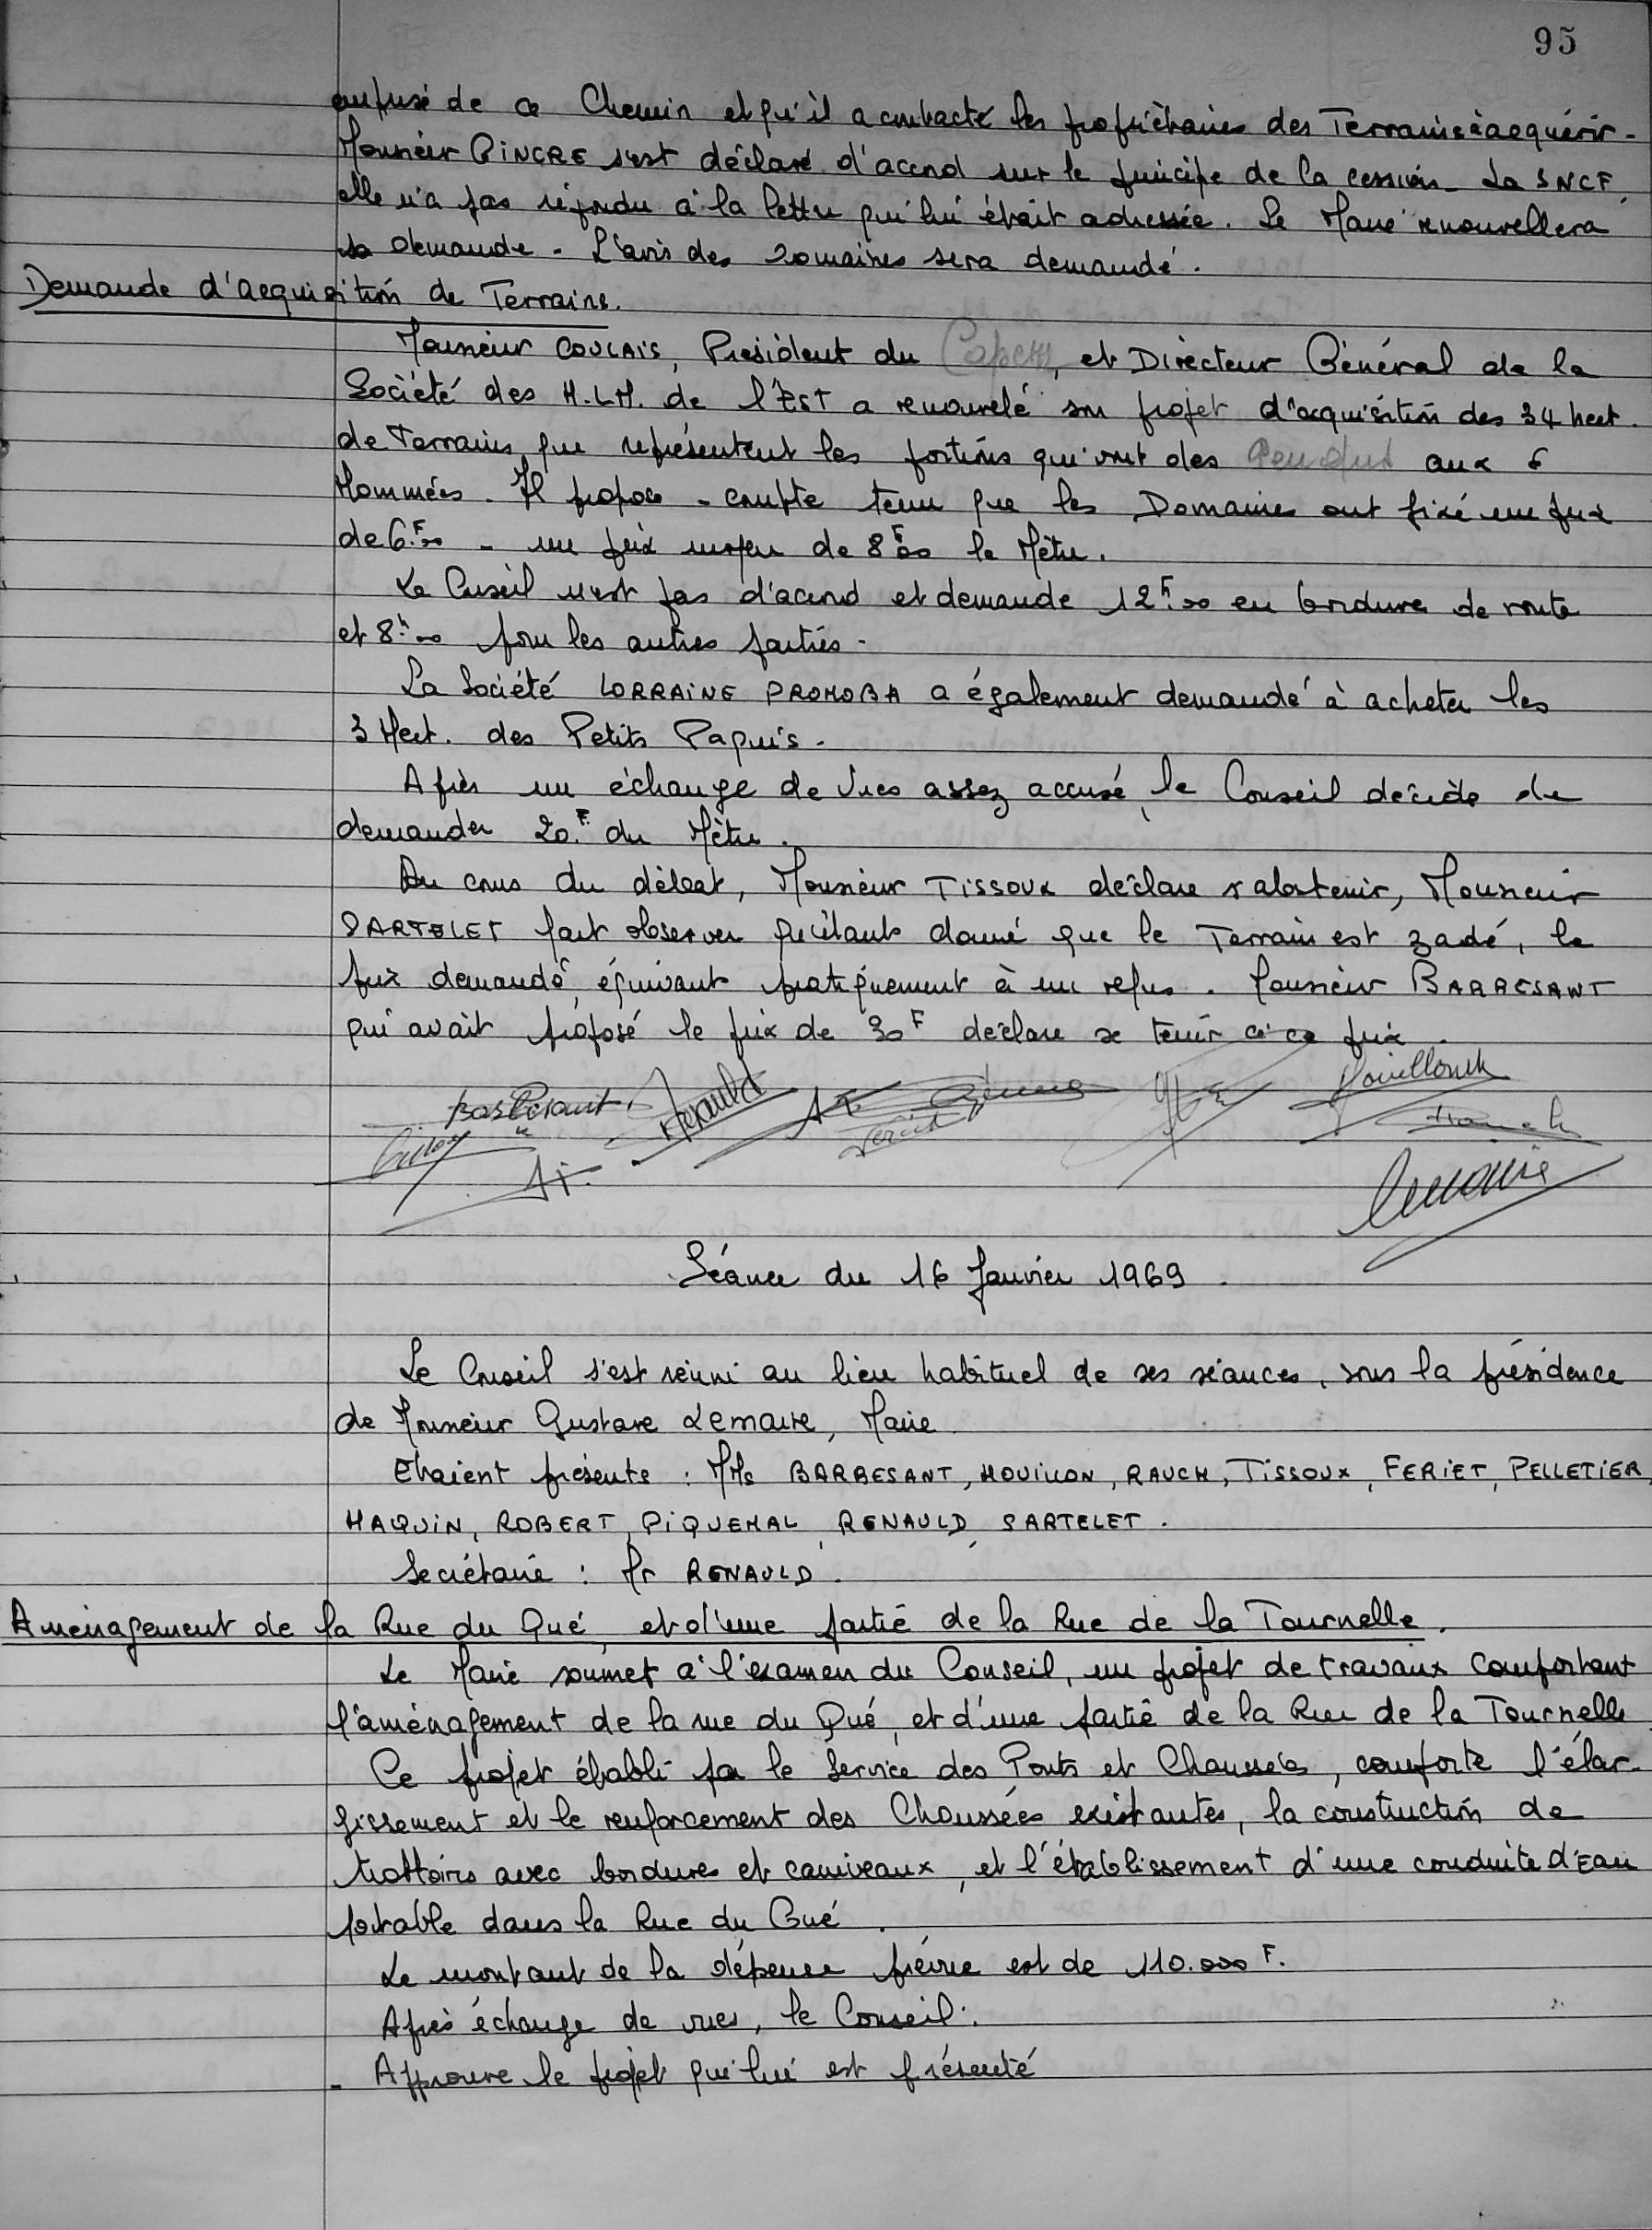 95
de ce Chemin et qu'il a contacté les propriétaires des Terrains à acquérir -
Monsieur PINCRE s'est déclaré d'accord sur le principe de la cession - La SNCF,
elle n'a pas répondu à la lettre qui lui était adressée. Le Maire renouvellera
sa demande - L'avis des Domaines sera demandé.
Demande d'acquisition de Terrains.
Monsieur COULAIS, Président du et Directeur Général de la
Société des H.L.M. de l'EST a renouvelé son projet d'acquisition des 34 hect.
de Terrains que représentent les portions qui vont des aux 6
Hommées. Il propose - compte tenu que les Domaines ont fixé un prix
de 6F.00 - un prix moyen de 8F00 le Mètre.
Le Conseil n'est pas d'accord et demande 12F.00 en bordure de route
et 8F.00 pour les autres parties -
La Société LORRAINE PROMOBA a également demandé à acheter les
3 Hect. des Petits Paquis.
Après un échange de vues assez accusé, le Conseil décide de
demander 20.F du Mètre.
Au cours du débat, Monsieur TISSOUX déclare s'abstenir, Monsieur
SARTELET fait observer qu'étant donné que le Terrain est zadé, le
prix demandé, équivaut pratiquement à un refus. Monsieur BARBESANT
qui avait proposé le prix de 30F déclare se tenir à ce prix.
Barbesant Renauld
Feriet
Mouillon
Lemaire
Séance du 16 Janvier 1969.
Le Conseil s'est réuni au lieu habituel de ses séances, sous la présidence
de Monsieur Gustave Lemaire, Maire
Etaient présents : MMs BARBESANT, MOUILLON, RAUCH, TISSOUX, FERIET, PELLETIER,
MAQUIN, ROBERT, PIQUEMAL, RENAULD, SARTELET.
Secrétaire : Mr RENAULD.
Aménagement de la Rue du Gué, et d'une partie de la Rue de la Tournelle.
Le Maire soumet à l'examen du Conseil, un projet de travaux comportant
l'aménagement de la rue du Gué, et d'une partie de la Rue de la Tournelle
Ce projet établi par le Service des Ponts et Chaussées, comporte l'élar-
gissement et le renforcement des Chaussées existantes, la construction de
trottoirs avec bordures et caniveaux, et l'établissement d'une conduite d'Eau
potable dans la Rue du Gué.
Le montant de la dépense prévue est de 110.000 F.
Après échange de vues, le Conseil :
- Approuve le projet qui lui est présenté